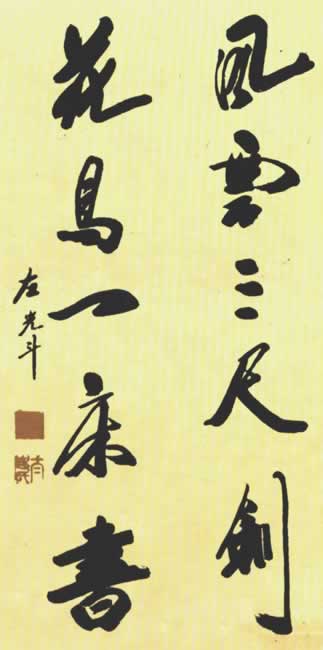 風雲三尺劍
花鳥一床書
左光斗